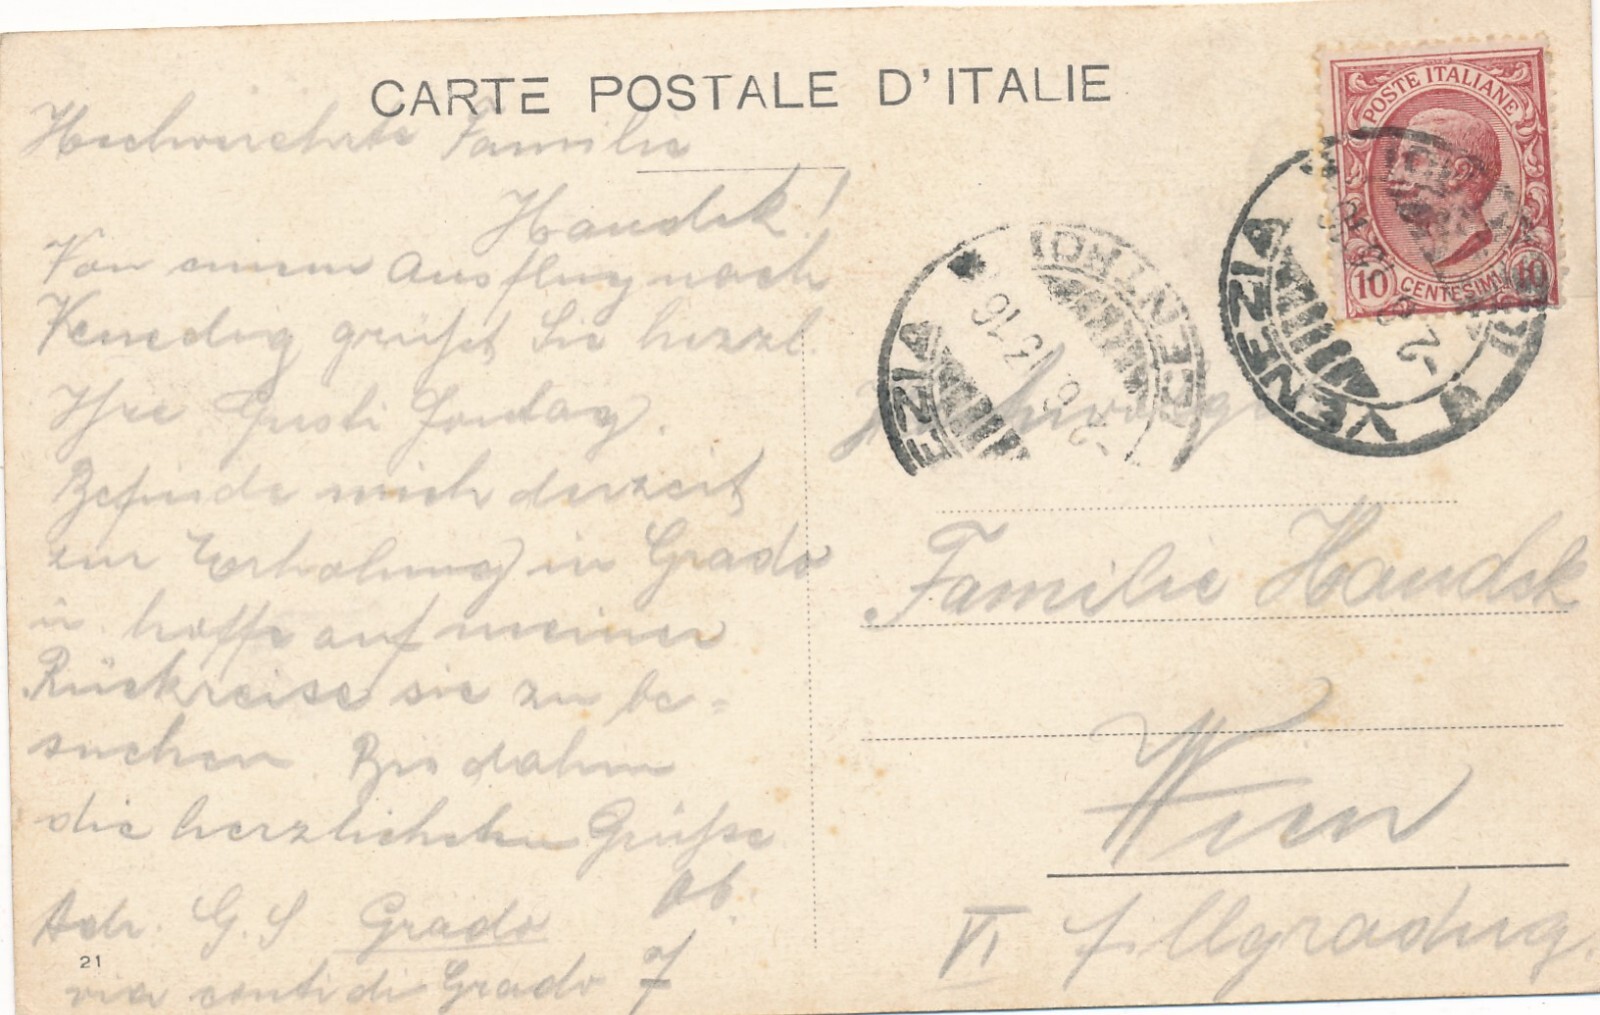 CARTE POSTALE D'ITALIE
Hochverehrte Familie
Handsk!
Von einem Ausflug nach
Venedig grüßt Sie herzl.
Ihre Gusti Sonntag.
Befinde mich derzeit
zur Erholung in Grado
u. hoffe auf meiner
Rückreise sie zu be=
suchen. Bis dahin
die herzlichsten Grüße
ob.
Adr. G. S Grado
via conti di Grado 7
21
POSTE ITALIANE
10 CENTESIMI 10
VENEZIA
CENTRO
EZIA
CENTRO
Familie Handsk
Wien
VI Fillgraderg.